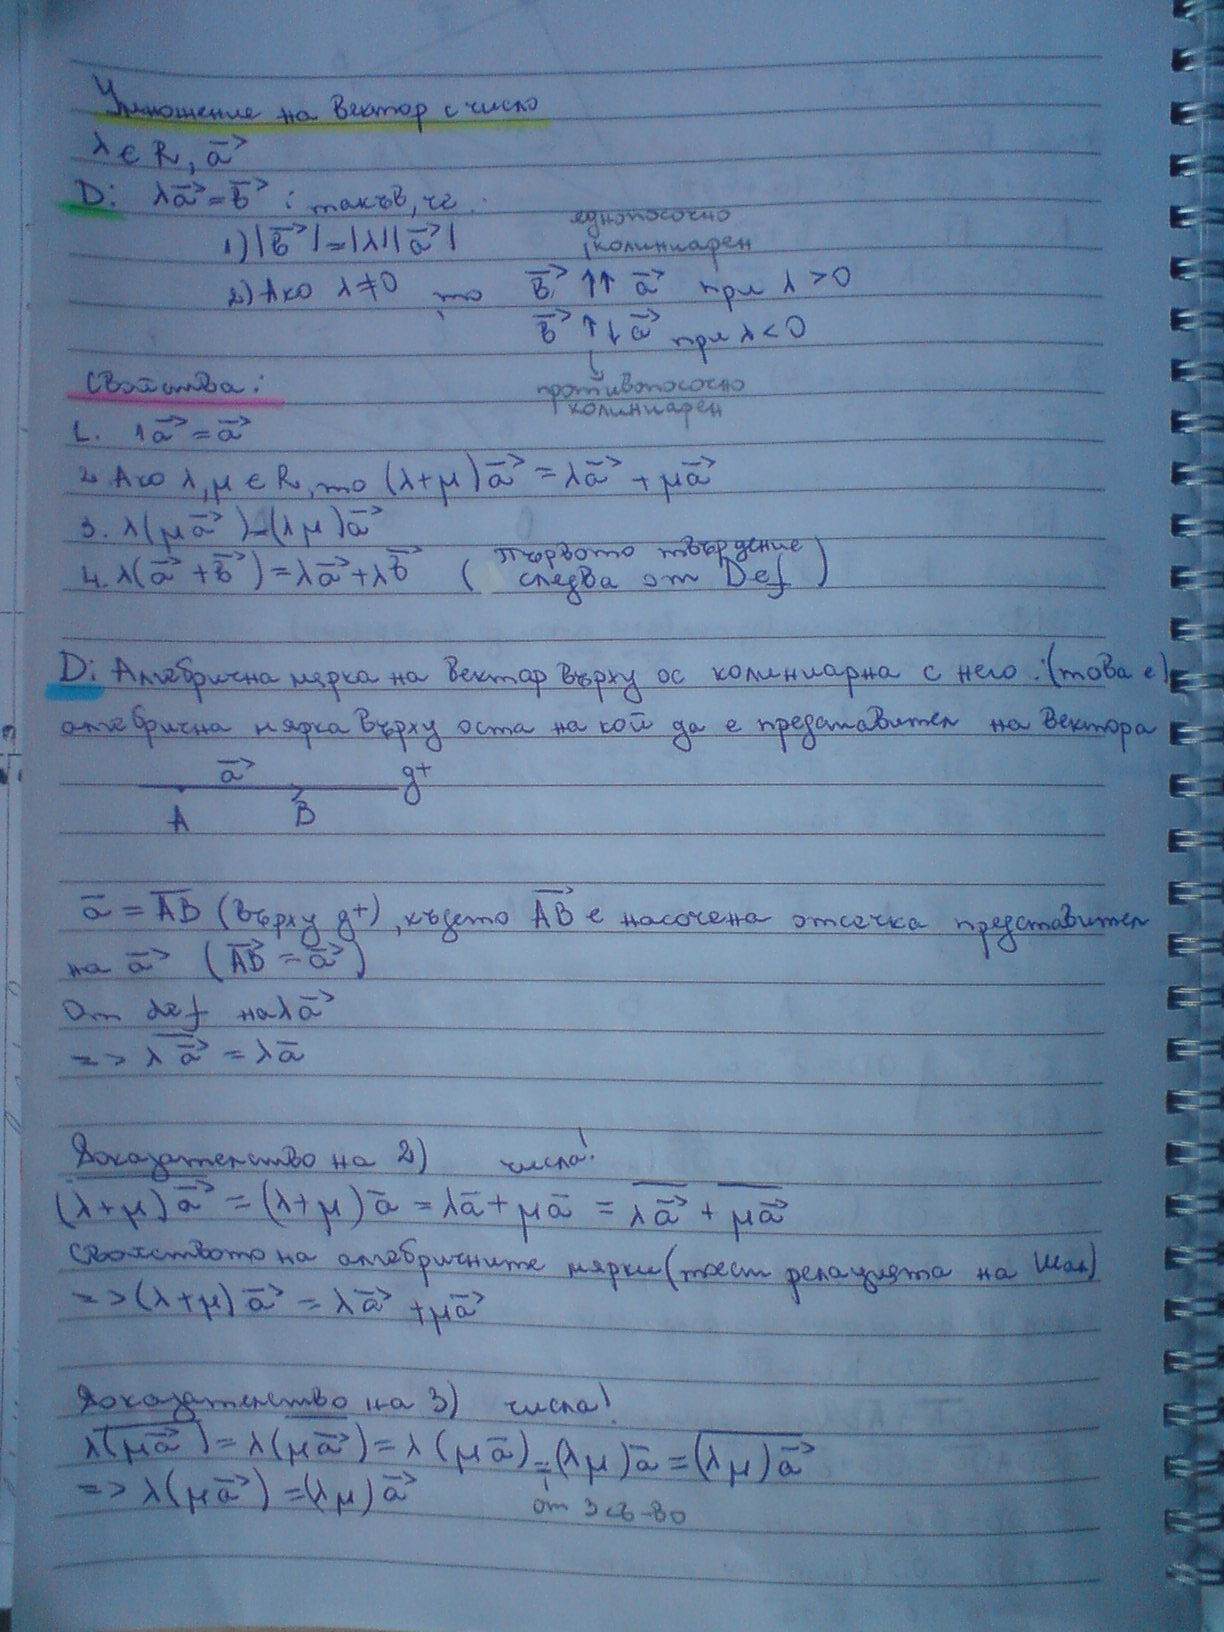 Умножение на вектор с число
λ ∈ R, a⃗
D: λa⃗ = b⃗ : такъв, че
1) |b⃗| = |λ||a⃗|
еднопосочно
колиниарен
2) Ако λ ≠ 0, то b⃗ ↑↑ a⃗ при λ > 0
b⃗ ↑↓ a⃗ при λ < 0
противопосочно
колиниарен
Свойства:
1. 1a⃗ = a⃗
2. Ако λ, μ ∈ R, то (λ+μ)a⃗ = λa⃗ + μa⃗
3. λ(μa⃗) = (λμ)a⃗
4. λ(a⃗ + b⃗) = λa⃗ + λb⃗ (Първото твърдение
следва от Def)
D: Алгебрична мярка на вектор върху ос колиниарна с него: (това е)
алгебрична мярка върху оста на кой да е представител на вектора
a⃗ g⁺
A B
a̅ = A̅B̅ (върху g⁺), където AB⃗ е насочена отсечка представител
на a⃗ (AB⃗ = a⃗)
От def на λa⃗
=> λa⃗̅ = λa̅
Доказателство на 2) числа!
(λ+μ)a⃗ = (λ+μ)a̅ = λa̅ + μa̅ = λa⃗̅ + μa⃗̅
Свойството на алгебричните мярки (тоест релацията на Шал)
=> (λ+μ)a⃗ = λa⃗ + μa⃗
Доказателство на 3) числа!
λ(μa⃗)̅ = λ(μa⃗)̅ = λ(μa̅) = (λμ)a̅ = (λμ)a⃗̅
=> λ(μa⃗) = (λμ)a⃗ от 3 св-во